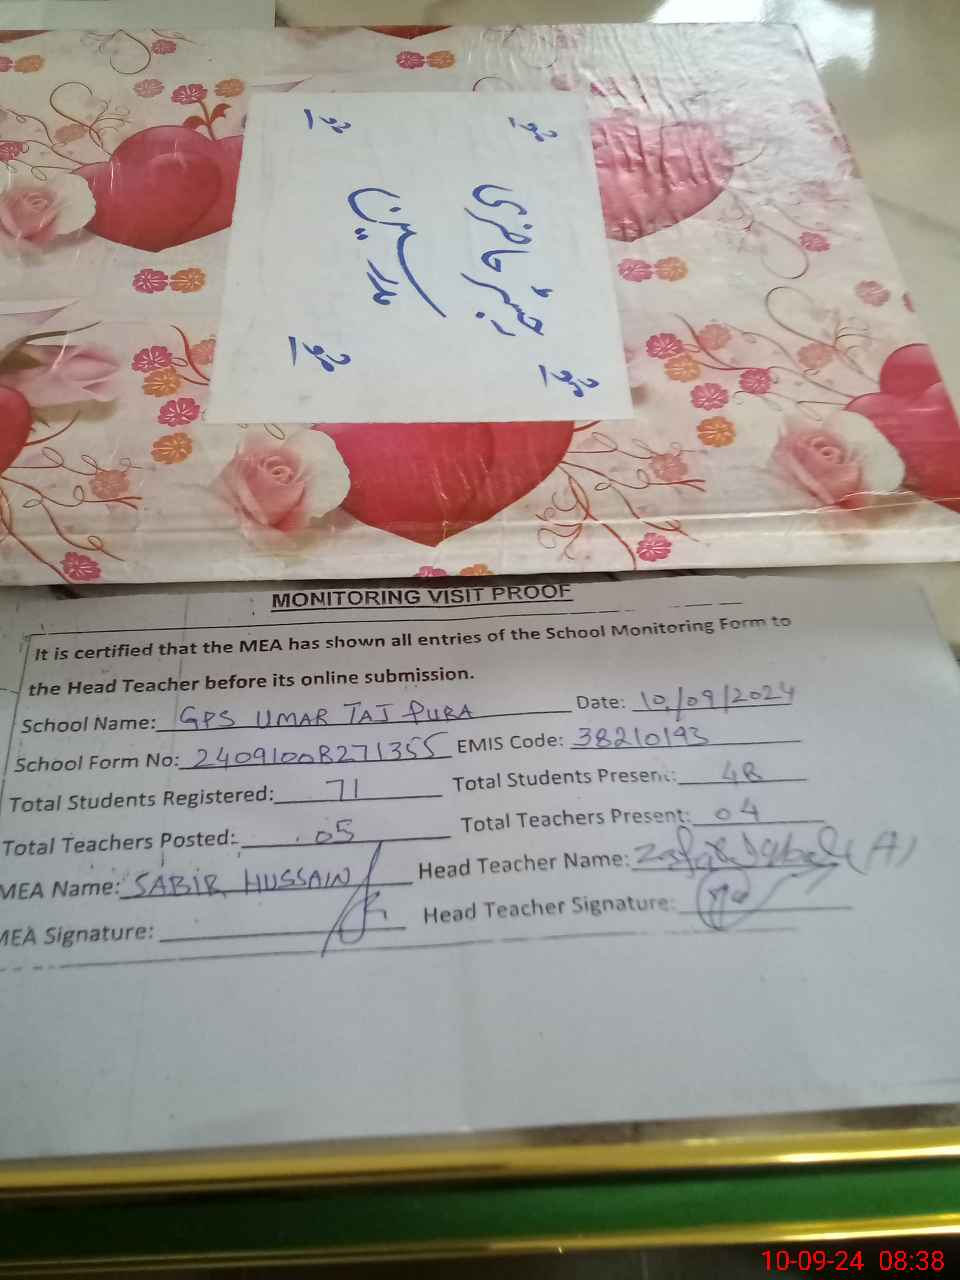 رجسٹر حاضری
مدرسین
MONITORING VISIT PROOF
It is certified that the MEA has shown all entries of the School Monitoring Form to
the Head Teacher before its online submission.
School Name: GPS UMAR TAJ PURA Date: 10/09/2024
School Form No: 24091008271355 EMIS Code: 38210193
Total Students Registered: 71 Total Students Present: 48
Total Teachers Posted: 05 Total Teachers Present: 04
MEA Name: SABIR HUSSAIN Head Teacher Name: Zafar Iqbal (A)
MEA Signature: Head Teacher Signature:
10-09-24 08:38